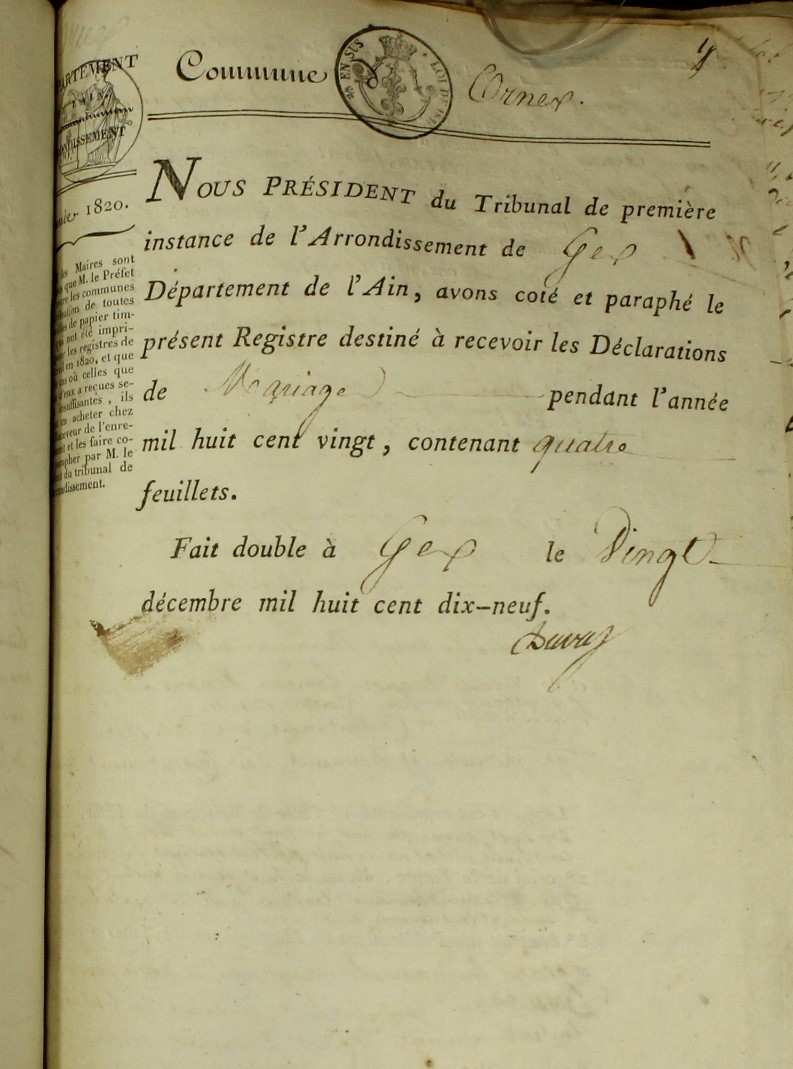 Commune d Ornex.
EN SUS
NOUS PRÉSIDENT du Tribunal de première
instance de l'Arrondissement de Gex
Département de l'Ain, avons coté et paraphé le
présent Registre destiné à recevoir les Déclarations
de Mariage pendant l'année
mil huit cent vingt, contenant quatre
feuillets.
Fait double à Gex le Vingt
décembre mil huit cent dix-neuf.
1820.
Maires sont
que M. le Préfet
les communes
de toutes
de papier tim-
ont été impri-
les registres de
en 1820, et que
où celles que
reçues se-
, ils
acheter chez
de l'enre-
et les faire co-
par M. le
du tribunal de